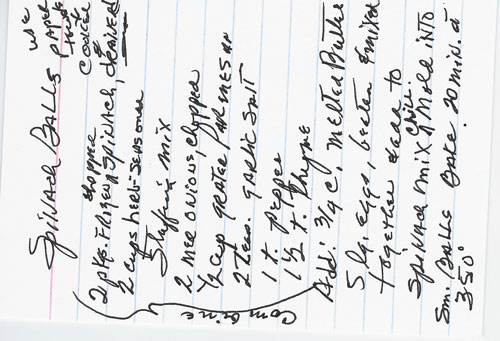 Spinach Balls
use paper
cooked &
chopped
2 pkgs. frozen spinach, drained
2 cups herb-seasoned
Stuffing mix
2 med onions, chopped
1/2 cup grated parmesan
2 teas. garlic salt
1 t. pepper
1 1/2 t. thyme
Combine
Add: 3/4 c. melted butter
5 lg. eggs, beaten & mixed
together. Add to
chill.
spinach mix & mold into
sm. balls Bake. 20 min. @
350°